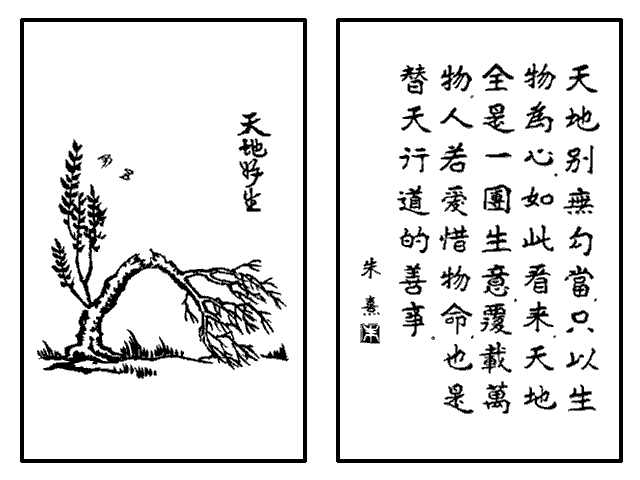 天地好生
天地別無勾當.只以生
物為心.如此看来.天地
全是一團生意.覆載萬
物.人若愛惜物命.也是
替天行道的善事.
朱熹